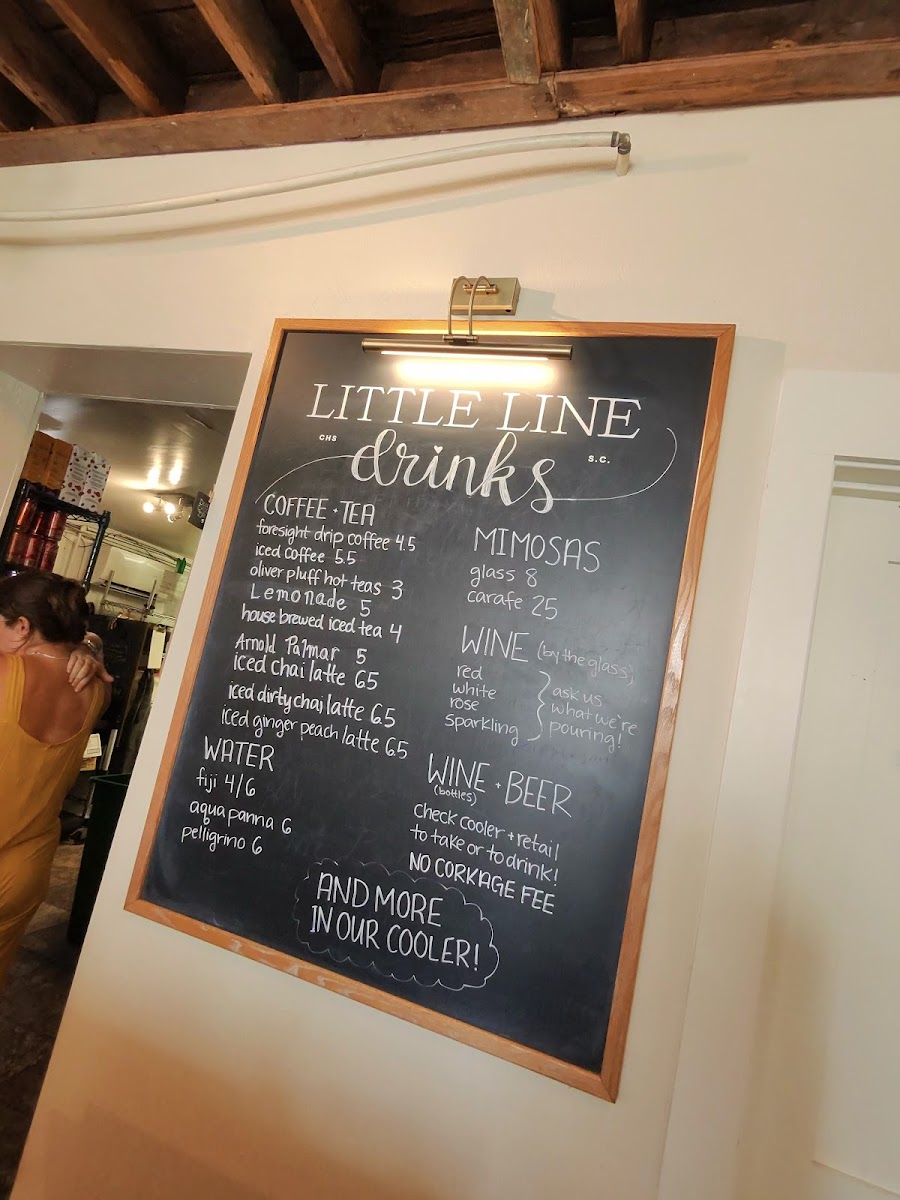 LITTLE LINE
CHS
drinks
S.C.
COFFEE + TEA
foresight drip coffee 4.5
iced coffee 5.5
oliver pluff hot teas 3
Lemonade 5
house brewed iced tea 4
Arnold Palmar 5
iced chai latte 65
iced dirty chai latte 6.5
iced ginger peach latte 6.5
WATER
fiji 4/6
aqua panna 6
pelligrino 6
MIMOSAS
glass 8
carafe 25
WINE (by the glass)
red
white
rose
sparkling
ask us
what we're
pouring!
WINE + BEER
(bottles)
check cooler + retail
to take or to drink!
NO CORKAGE FEE
AND MORE
IN OUR COOLER!